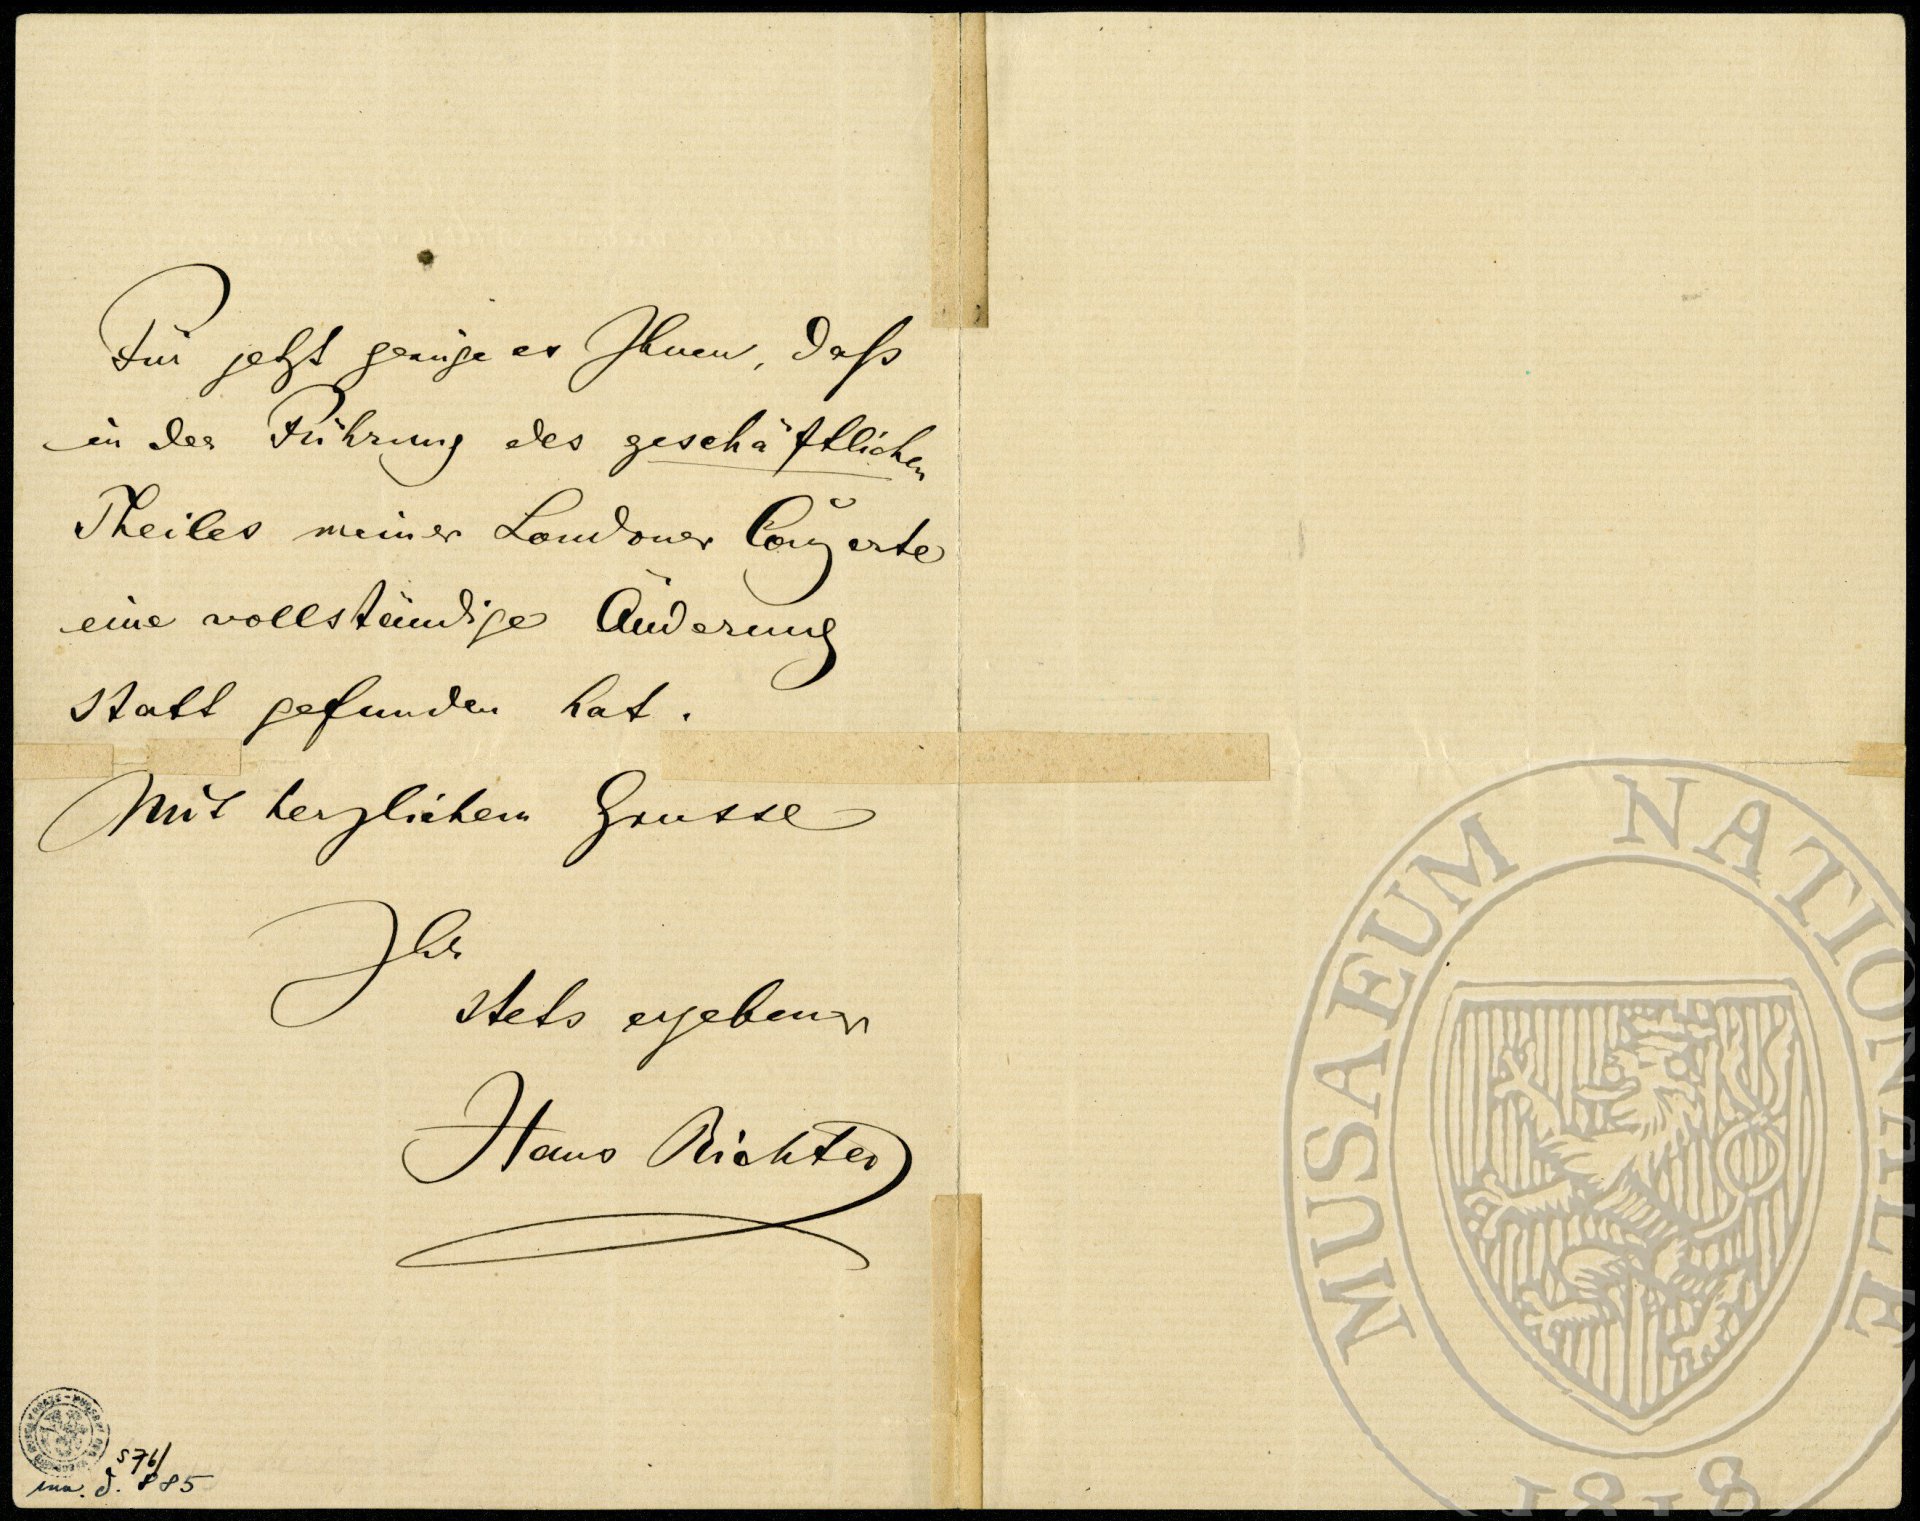 Für jetzt genüge es Ihnen, daß
in der Führung des geschäftlichen
Theiles meiner Londoner Conzerte
eine vollständige Änderung
statt gefunden hat.
Mit herzlichem Grusse
Ihr
stets ergebener
Hans Richter
S 76/
885
MUSAEUM NATIONALE
1818